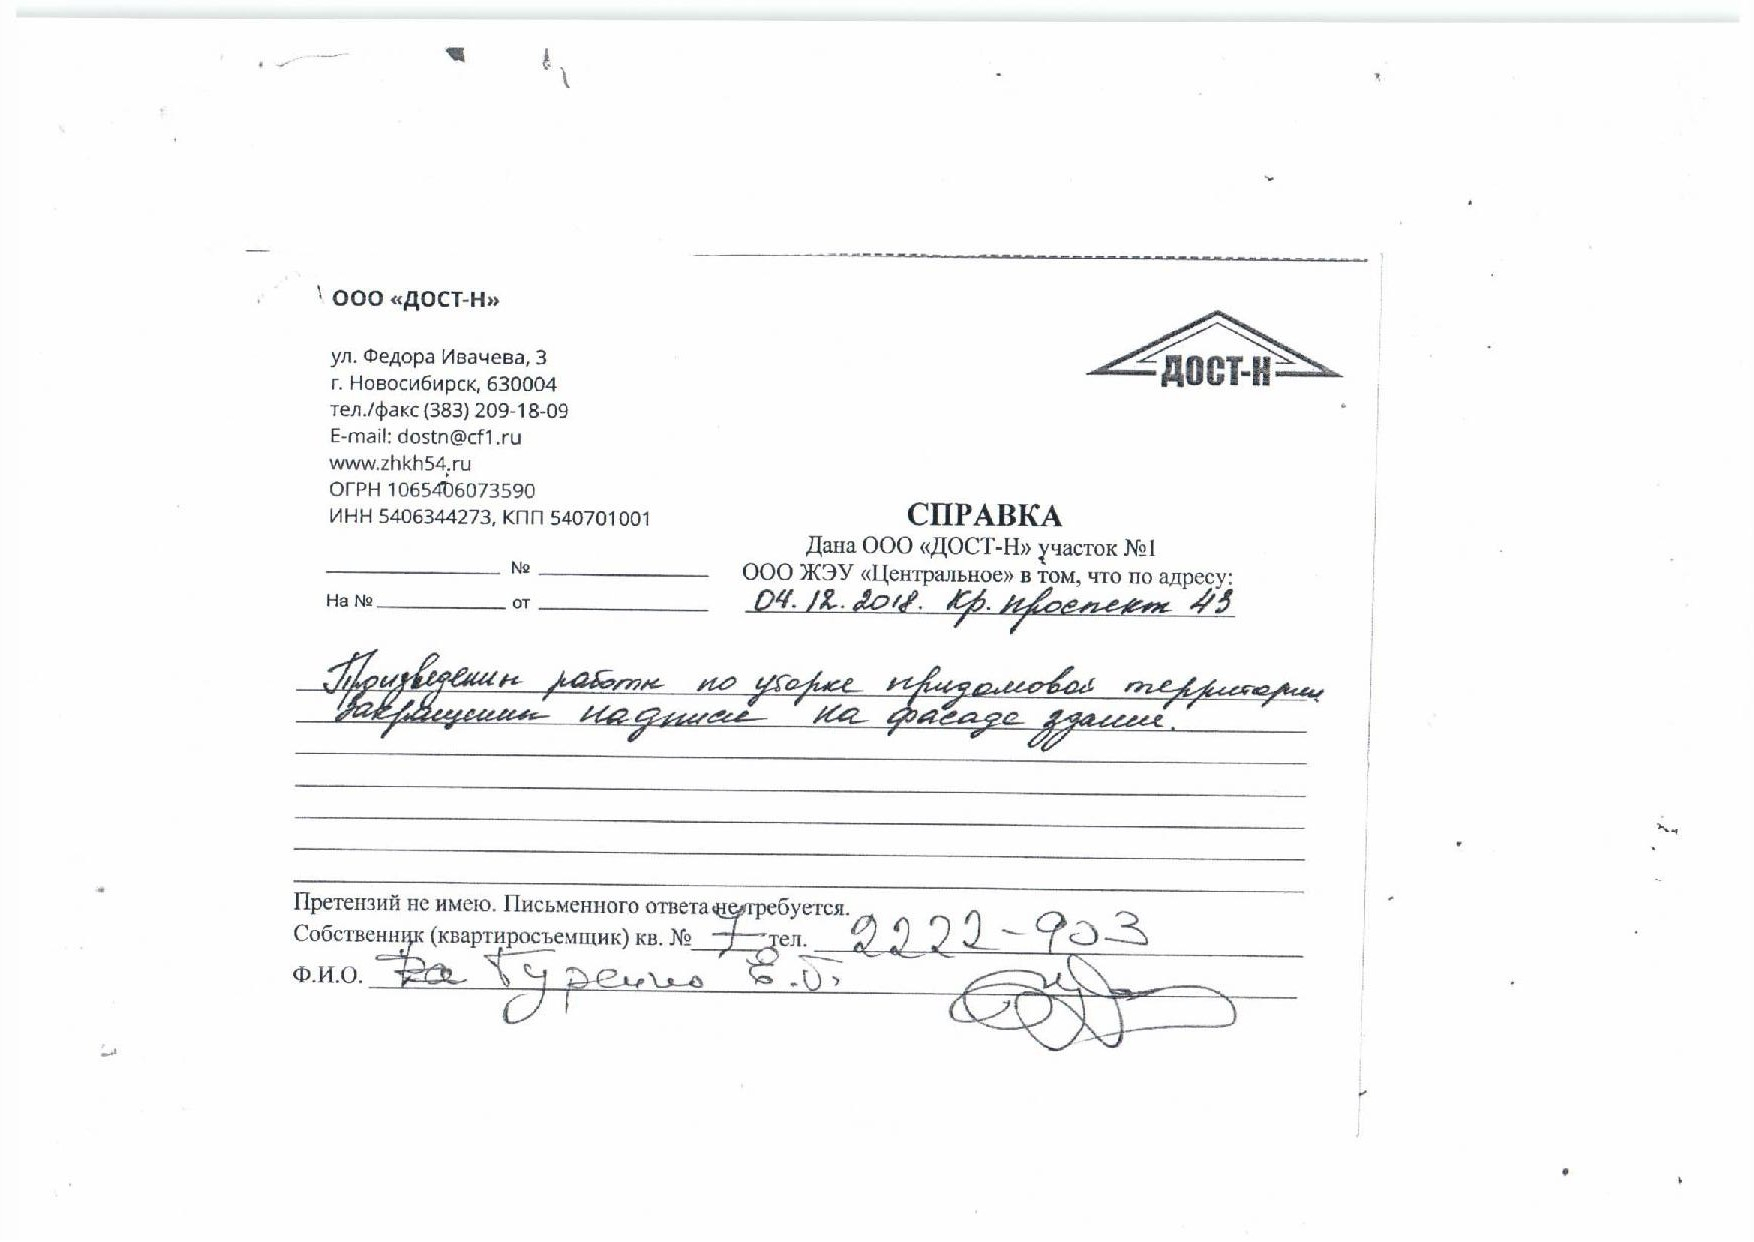 ООО «ДОСТ-Н»
ул. Федора Ивачева, 3
г. Новосибирск, 630004
тел./факс (383) 209-18-09
E-mail: dostn@cf1.ru
www.zhkh54.ru
ОГРН 1065406073590
ИНН 5406344273, КПП 540701001
№
На № от
ДОСТ-Н
СПРАВКА
Дана ООО «ДОСТ-Н» участок №1
ООО ЖЭУ «Центральное» в том, что по адресу:
04.12.2018. Кр. проспект 43
Произведении работы по уборке придомовой территории
закрашении надписи на фасаде здания.
Претензий не имею. Письменного ответа не требуется.
Собственник (квартиросъемщик) кв. № 7 тел. 2222-903
Ф.И.О.